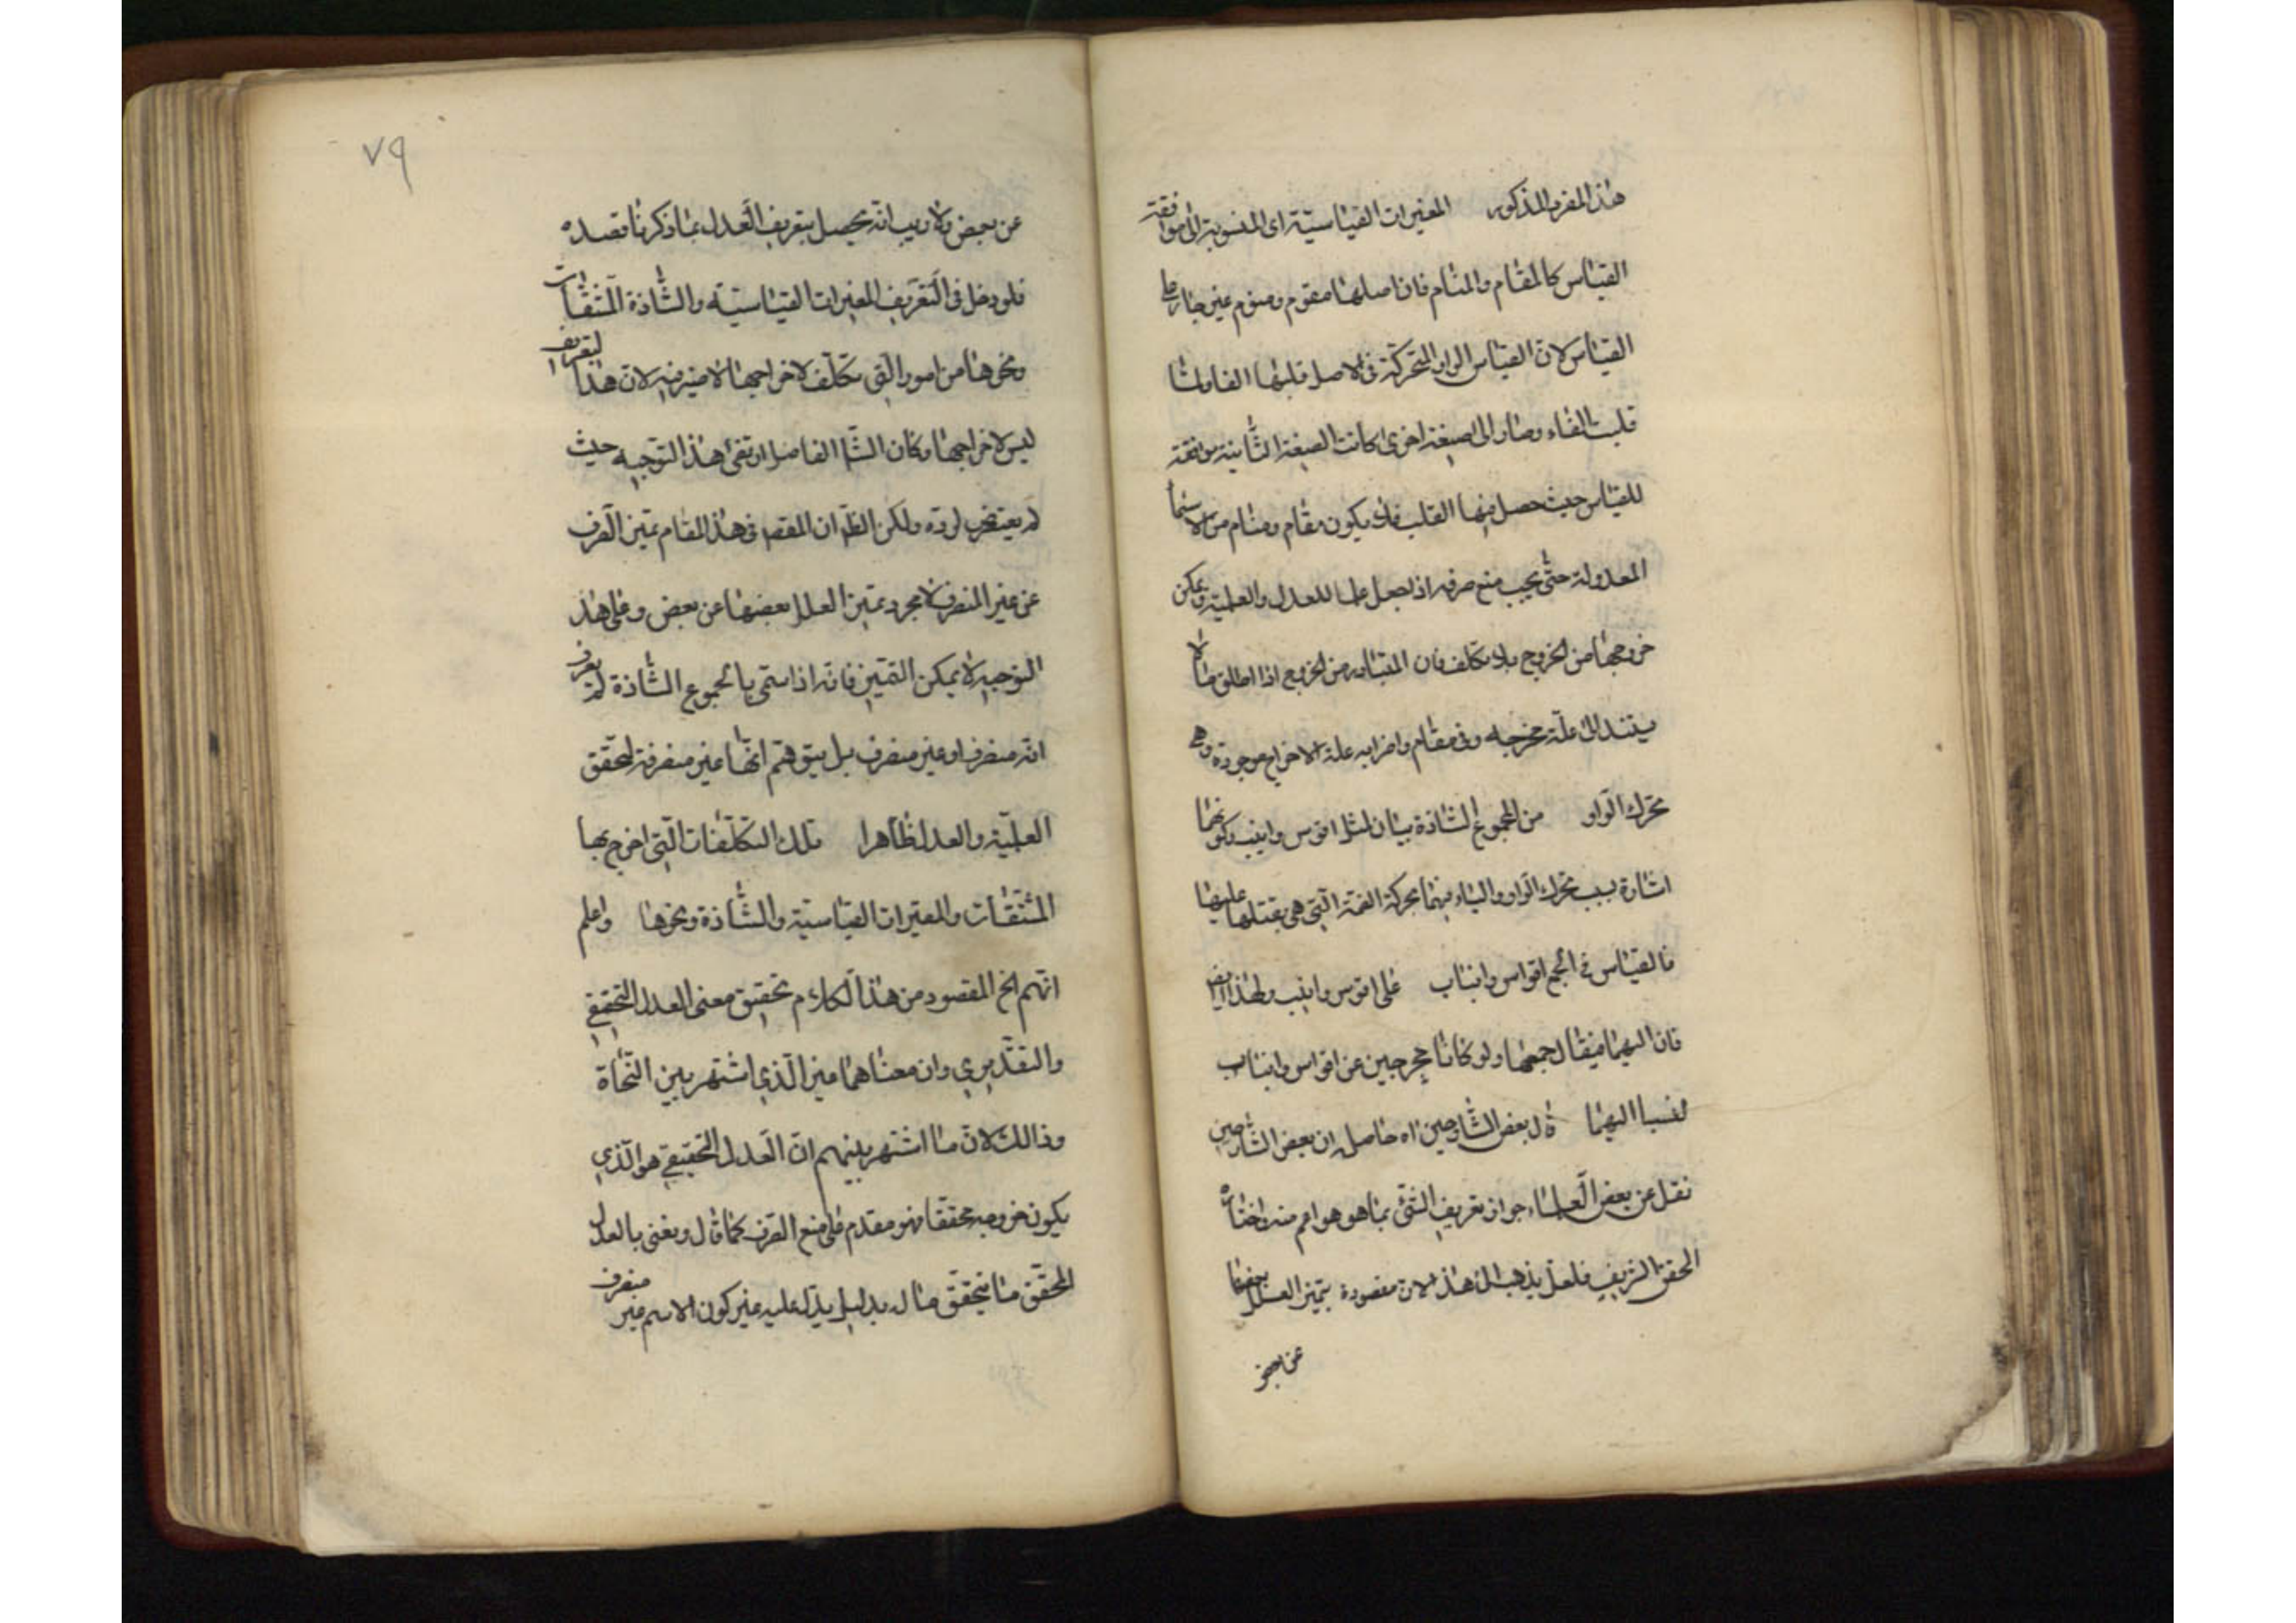 هذا المفرد المذكور المغيرات القياسيّة اى المنسوبة الى موافقة
القياس كالمقام والمنام فان اصلهما مقوم ومنوم غير جار على
القياس لان القياس الواو المتحركة فى الاصل قلبها الفا ولما
قلبت الفاء وصار الى صيغة اخرى كانت الصيغة الثانية موافقة
للقياس حيث حصل فيها القلب فلا يكون مقام ومنام من الاسماء
المعدولة حتى يجب منع صرفه اذا جعل علما للعدل والعلمية ويمكن
خروجها من الخروج بلا تكلف فان المتبادر من الخروج اذا اطلق ما لا
يستند الى علّة مخرجه وفى مقام واضرابه علة الاخراج موجودة وهى
تحرك الواو من الجموع الشاذة بيان لمثل اقوس وانيب وكونهما
اشارة بسبب تحرك الواو والياء فيهما بحركة الضمة التى هى عليهما
فالقياس فى الجمع اقواس وانياب على اقوس وانيب ولهذا
فان اليهما فيقال جمعهما ولو كانا مخرجين عن اقواس وانياب
لنسبا اليهما قال بعض الشارحين اه حاصله ان بعض الشارحين
نقل عن بعض العلماء جواز تعريف الشئ بما هو هو اعم منه واختاره
المحقق الشريف فلعله يذهب الى هذا لان مقصوده تميز العلل بعضها
عن بعض
٧٩
عن بعض ولا ريب انّه يحصل بتعريف العدل بما ذكرنا قصده
فلو دخل فى التعريف المغيرات القياسيّة والشاذة المشتقات
ونحوها من امور التى تكلّف لاخراجها لا ضير فيه لان هذا التعريف
ليس لاخراجها وكان الشا الفاضل ارتضى هذا التوجيه حيث
لم يتعرض لردّه ولكن الظ ان المقصد فى هذا المقام تميز الصرف
عن غير المنصرف لا مجرد تميز العلل بعضها عن بعض وعلى هذا
التوجيه لا يمكن التميز فانه اذا سمى بالجموع الشاذة لم يعرف
انّه منصرف او غير منصرف بل يتوهم انها غير منصرفة لتحقق
العلميّة والعدل ظاهرا تلك التكلّفات التى اخرج بها
المشتقات والمغيرات القياسيّة والشاذة ونحوها واعلم
انهم الخ المقصود من هذا الكلام تحقيق معنى العدل التحقيقى
والتقديرى وان معناهما غير الذى اشتهر بين النحاة
وذالك لان ما اشتهر بينهم انّ العدل التحقيقى هو الذى
يكون خروجه محققا فهو مقدم على منع الصرف كما قال ونعنى بالعدل
المحقّق ما يتحقّق حاله بدليل يدلّ عليه غير كون الاسم غير منصرف